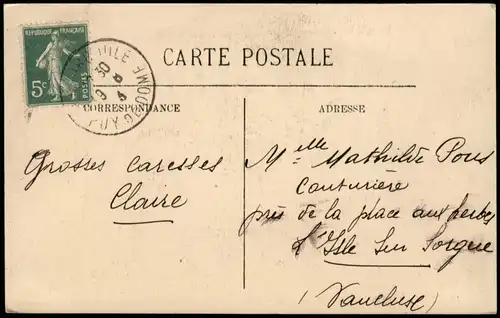 REPUBLIQUE FRANÇAISE
5c
POSTES
30
PUY-DE-DOME
CARTE POSTALE
CORRESPONDANCE
ADRESSE
Grosses caresses
Claire
Melle Mathilde Pons
Couturière
près de la place aux herbes
L'Isle sur Sorgue
(Vaucluse)